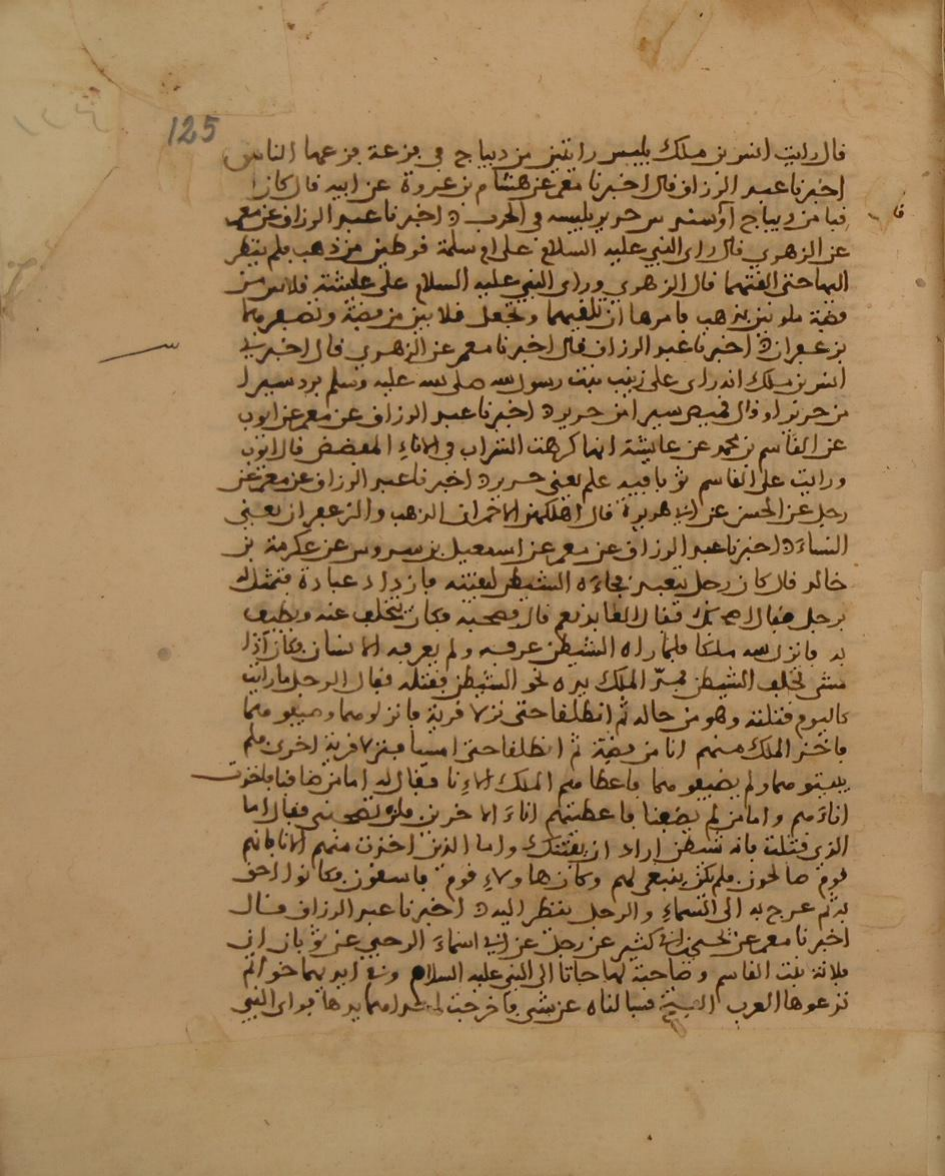 125
قال رايت انس بن ملك يلبس رايتين من ديباج في فزعة فزعها الناس
اخبرنا عبد الرزاق قال اخبرنا معمر عن هشام بن عروة عن ابيه قال كان
قبا من ديباج او سندس حرير يلبسه في الحرب ه اخبرنا عبد الرزاق عن معمر
عن الزهري قال راى النبي عليه السلام على ام سلمة قرطين من ذهب فلم ينظر
اليها حتى القتهما قال الزهري وراى النبي عليه السلام على عايشة قلابين من
فضة ملونين بذهب فامرها ان تلقيهما وتجعل قلابين من فضة وتصفرهما
بزعفران ه اخبرنا عبد الرزاق قال اخبرنا معمر عن الزهري قال اخبرني
انس بن ملك انه راى على زينب بنت رسول الله صلى الله عليه وسلم برد سيرا
من حرير او قال قميص سيرا من حرير ه اخبرنا عبد الرزاق عن معمر عن ايوب
عن القاسم بن محمد عن عايشة انها كرهت الشراب في الاناء المفضض قال ايوب
ورايت على القاسم ثوبا فيه علم يعني حرير ه اخبرنا عبد الرزاق عن معمر عن
رجل عن الحسن عن ابي هريرة قال اهلكهن الاحمران الذهب والزعفران يعني
النساء ه اخبرنا عبد الرزاق عن معمر عن اسمعيل بن سروس عن عكرمة بن
خالد قال كان رجل يتعبد فجاءه الشيطن ليفتنه فازداد عبادة فتمثل له
برجل فقال اصحبك فقال العابد نعم قال فصحبه فكان يتخلف عنه ويطيف
به فانزل الله ملكا فلما راه الشيطن عرفه ولم يعرفه الانسان فكان اذا
مشى تخلف الشيطن فمد الملك يده نحو الشيطن فقتله فقال الرجل ما رايت
كاليوم قتلته وهو من حاله ثم انطلقا حتى نزلا قرية فانزلوهما وضيفوهما
فاخذ الملك منهم انا من فضة ثم انطلقا حتى امسيا فنزلا قرية اخرى فلم
يبيتوهما ولم يضيفوهما فاعطاهم الملك الانا فقال له اما من ضافنا فاخذت
اناءهم واما من لم يضفنا فاعطيتهم اناء الاخرين فلن تصحبني فقال اما
الذي قتلت فانه شيطن اراد ان يفتنك واما الذين اخذت منهم الانا فانهم
قوم صالحون فلم يكن ينبغي لهم وكان هاولاء قوم فاسقون فكانوا احق
به ثم عرج به الى السماء والرجل ينظر اليه ه اخبرنا عبد الرزاق قال
اخبرنا معمر عن يحيى بن ابي كثير عن رجل عن ابي اسماء الرحبي عن ثوبان ان
فلانة بنت القاسم وصاحبة لها جاتا الى النبي عليه السلام وفي ايديهما خواتم
تدعوها العرب الفتخ فسالتاه عن شي فاخرجت احداهما يدها فراى النبي